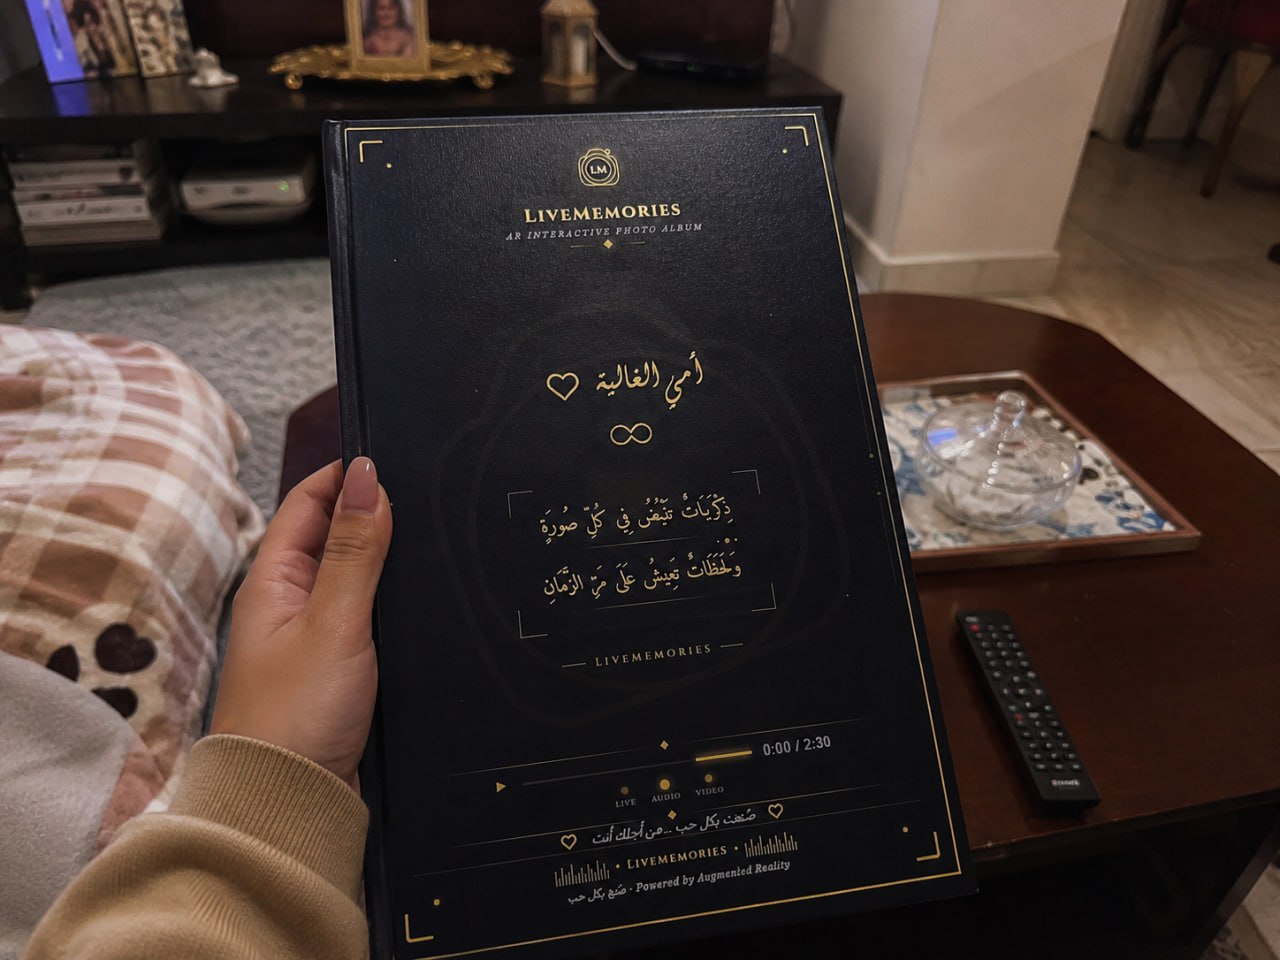 LM
LIVEMEMORIES
AR INTERACTIVE PHOTO ALBUM
أمي الغالية
ذِكْرَيَاتٌ تَنْبُضُ فِي كُلِّ صُورَةٍ
وَلَحَظَاتٌ تَعِيشُ عَلَى مَرِّ الزَّمَانِ
LIVEMEMORIES
0:00 / 2:30
LIVE AUDIO VIDEO
صُنعت بكل حب ...من أجلك أنت
• LIVEMEMORIES •
صُنع بكل حب - Powered by Augmented Reality